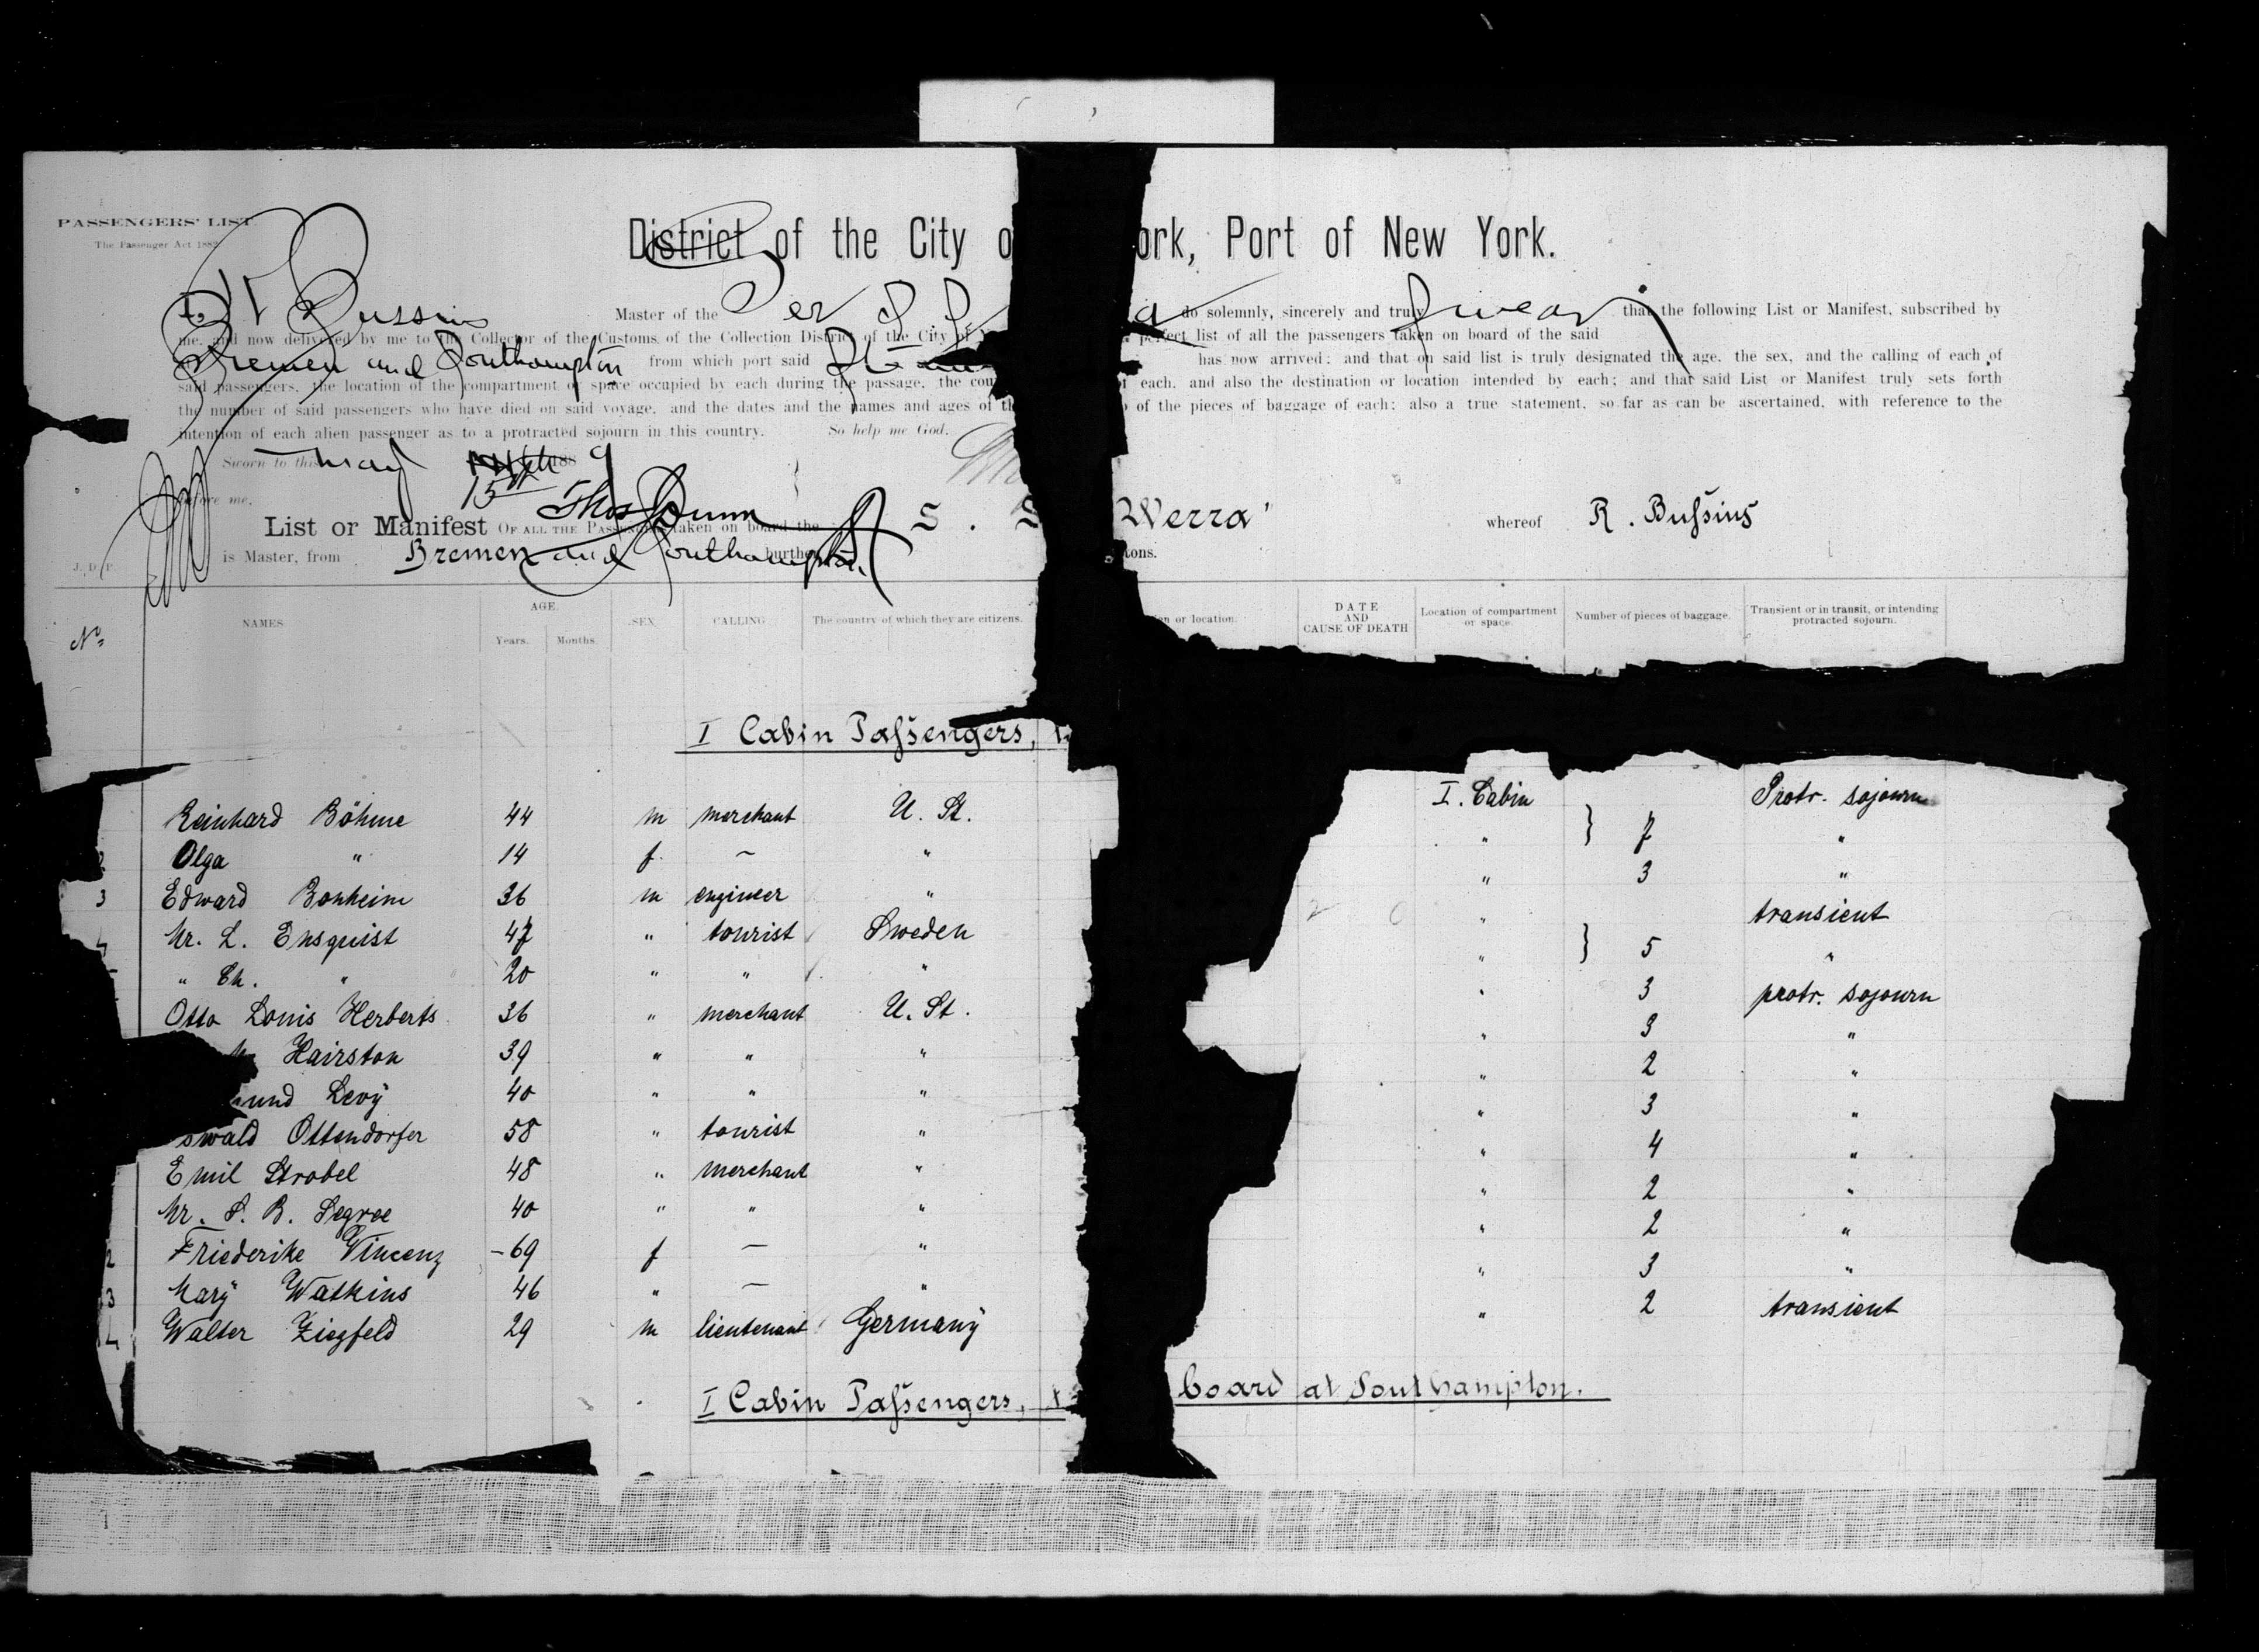 PASSENGERS' LIST.
The Passenger Act 1882
District of the City o ork, Port of New York.
I, R Bussius Master of the Ger S. S. a do solemnly, sincerely and truly swear that the following List or Manifest, subscribed by
me, and now delivered by me to the Collector of the Customs of the Collection District of the City of perfect list of all the passengers taken on board of the said
Bremen and Southampton from which port said has now arrived; and that on said list is truly designated the age, the sex, and the calling of each of
said passengers, the location of the compartment or space occupied by each during the passage, the cou f each, and also the destination or location intended by each; and that said List or Manifest truly sets forth
the number of said passengers who have died on said voyage, and the dates and the names and ages of th of the pieces of baggage of each; also a true statement, so far as can be ascertained, with reference to the
intention of each alien passenger as to a protracted sojourn in this country. So help me God.
Sworn to this May 15th 1889
before me,
Thos Dunn
List or Manifest OF ALL THE PASSENGERS taken on board the S. S Werra" whereof R. Bußius
is Master, from Bremen and Southampton, burthen tons.
J. D. P.
No NAMES. AGE. Years. Months. SEX. CALLING. The country of which they are citizens. on or location. DATE AND CAUSE OF DEATH Location of compartment or space. Number of pieces of baggage. Transient or in transit, or intending protracted sojourn.
I Cabin Paßengers,
Reinhard Böhme 44 m merchant U. St. I. Cabin } 7 Protr. sojourn
2 Olga " 14 f. — " " "
3 Edward Bonheim 36 m engineer " " 3 "
4 Mr. L. Enquist 47 " tourist Sweden " } 5 transient
" Ch. " 20 " " " " "
Otto Louis Herberts 36 " merchant U. St. " 3 protr. sojourn
Hairston 39 " " " " 3 "
mund Levy 40 " " " " 2 "
swald Ottendorfer 58 " tourist " " 3 "
Emil Strobel 48 " merchant " " 4 "
Mr. S. B. Segree 40 " " " " 2 "
2 Friederike Vincenz -69 f — " " 2 "
3 Mary Watkins 46 " — " " 3 "
4 Walter Ziegfeld 29 m lieutenant Germany " 2 transient
I Cabin Paßengers, board at Southampton.